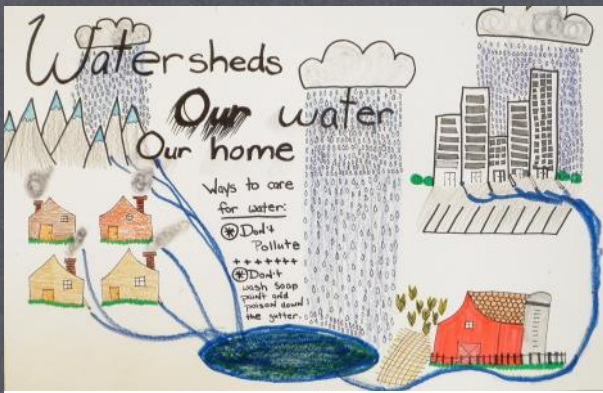 Watersheds
Our water
Our home
Ways to care
for water:
Don't
Pollute
Don't
wash soap
paint and
poison down
the gutter.